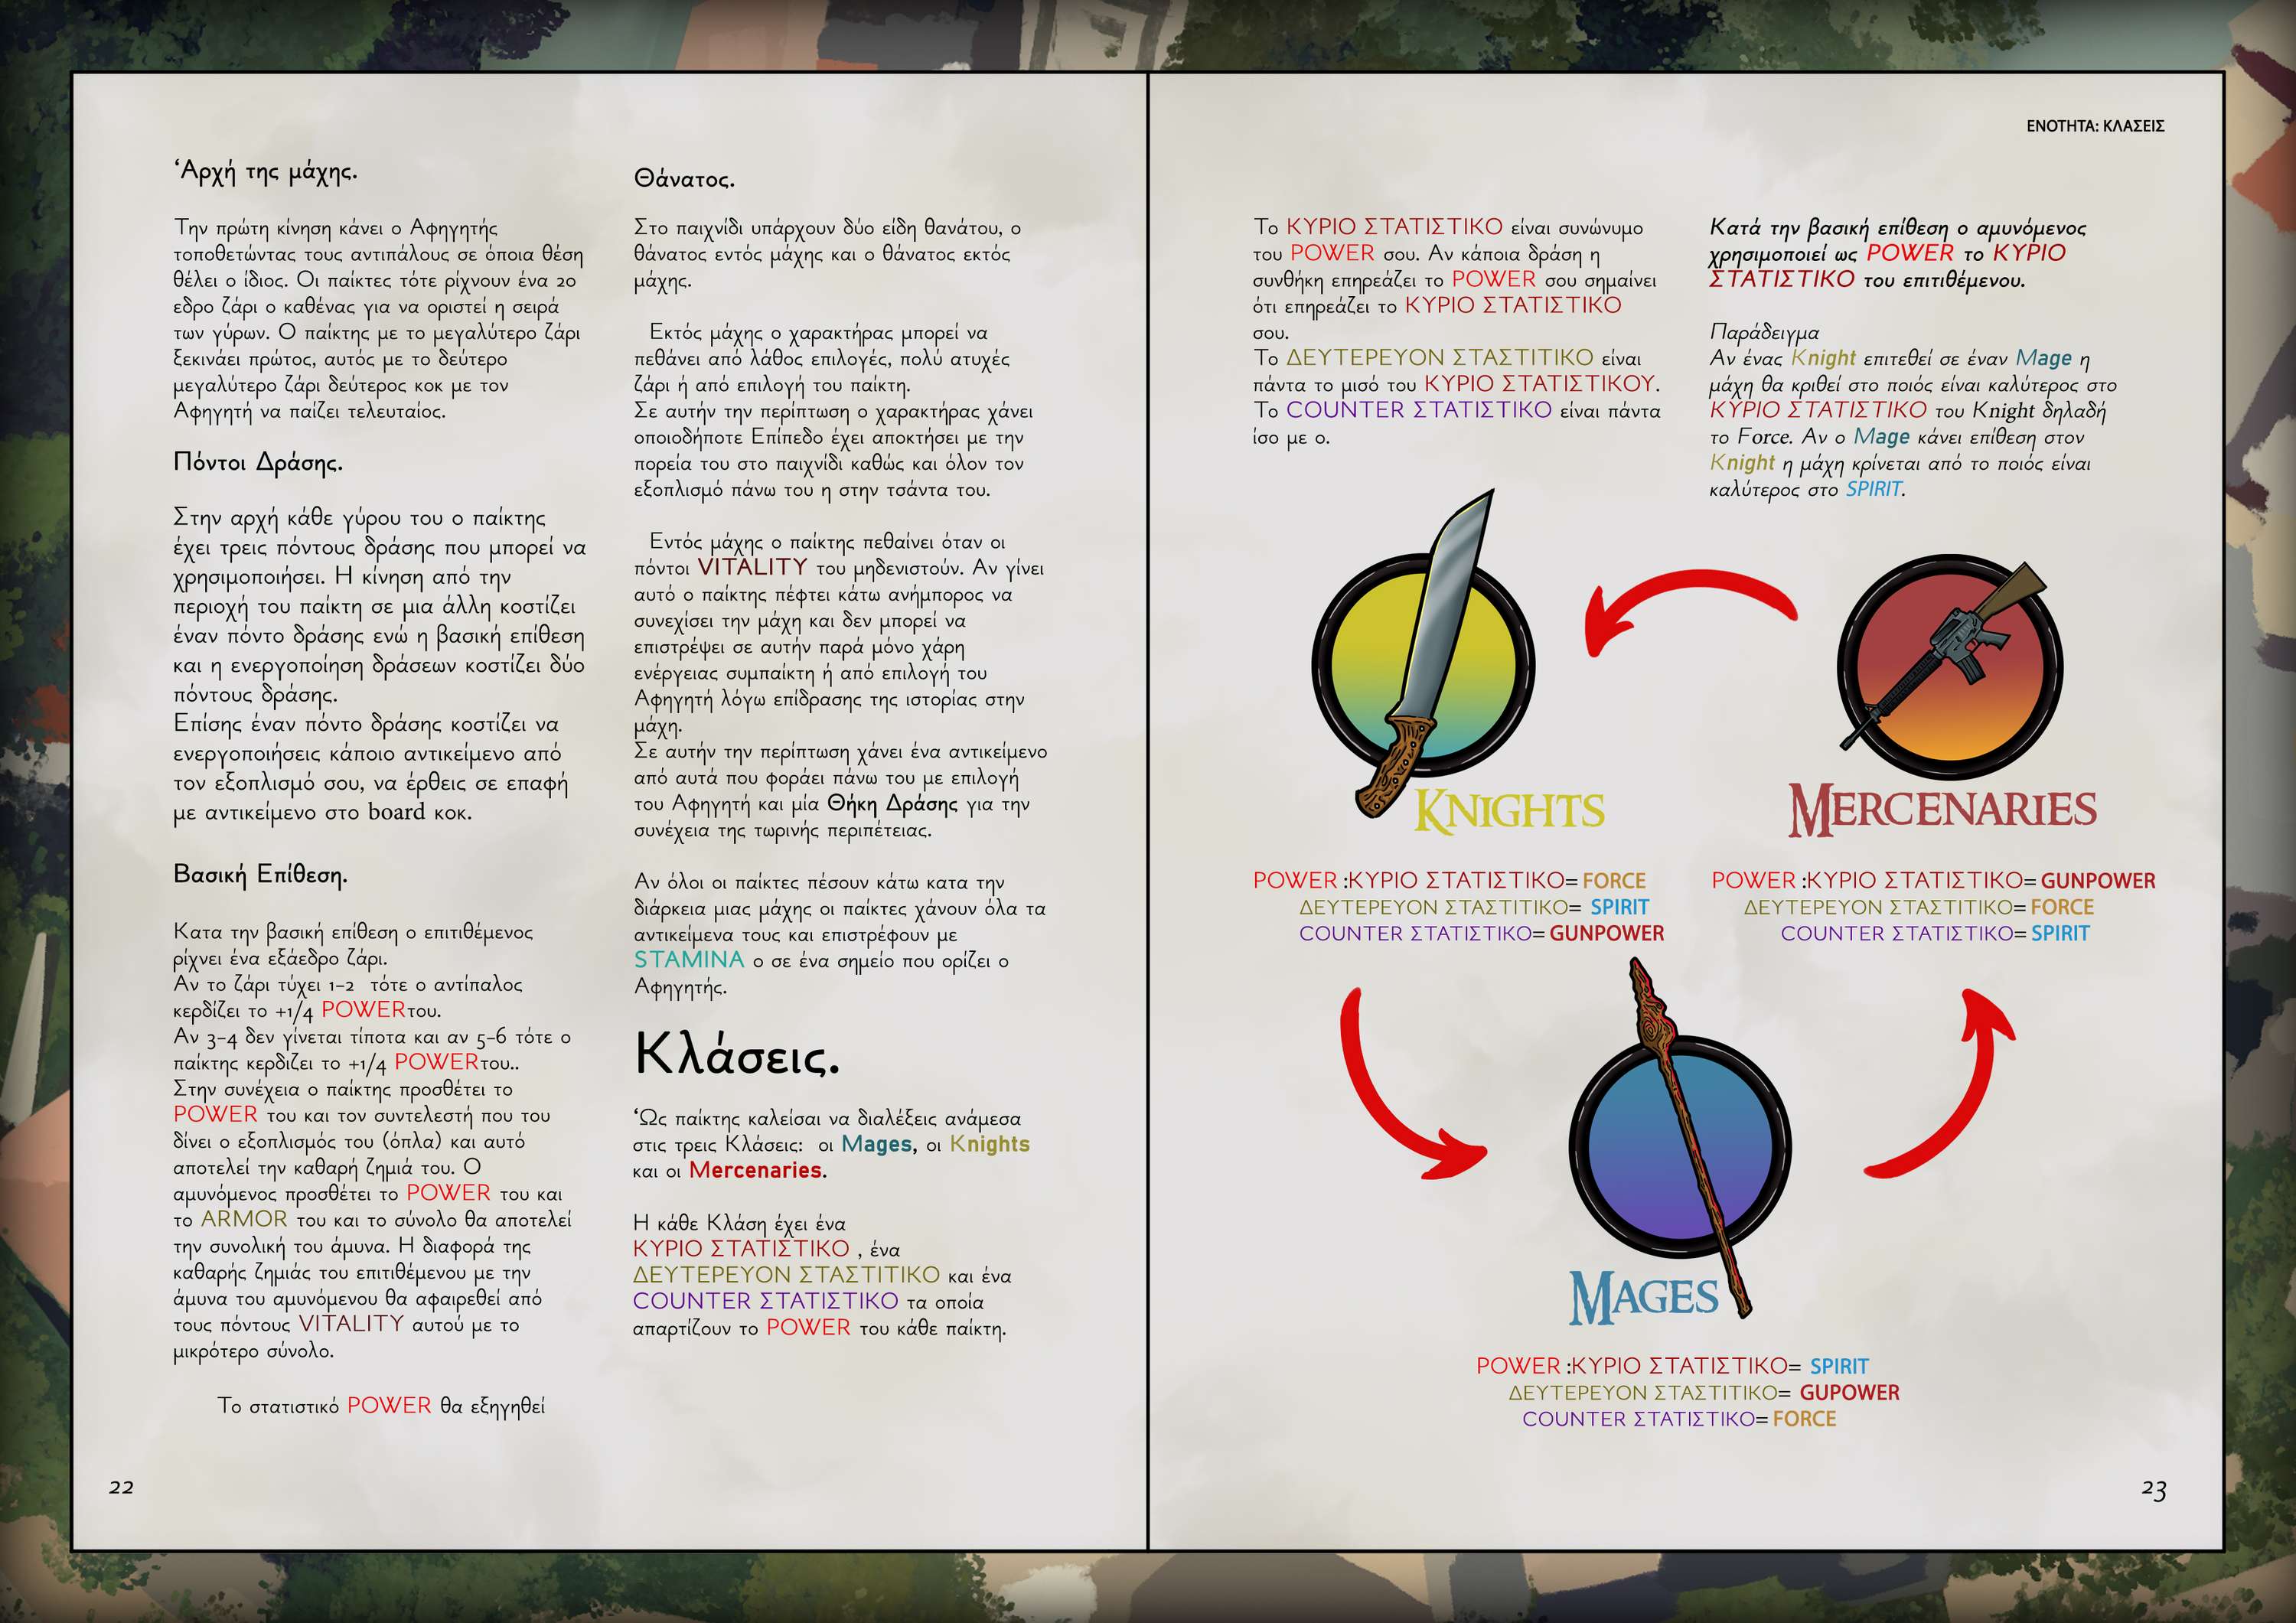 ‘Αρχή της μάχης.
Την πρώτη κίνηση κάνει ο Αφηγητής
τοποθετώντας τους αντιπάλους σε όποια θέση
θέλει ο ίδιος. Οι παίκτες τότε ρίχνουν ένα 20
εδρο ζάρι ο καθένας για να οριστεί η σειρά
των γύρων. Ο παίκτης με το μεγαλύτερο ζάρι
ξεκινάει πρώτος, αυτός με το δεύτερο
μεγαλύτερο ζάρι δεύτερος κοκ με τον
Αφηγητή να παίζει τελευταίος.
Πόντοι Δράσης.
Στην αρχή κάθε γύρου του ο παίκτης
έχει τρεις πόντους δράσης που μπορεί να
χρησιμοποιήσει. Η κίνηση από την
περιοχή του παίκτη σε μια άλλη κοστίζει
έναν πόντο δράσης ενώ η βασική επίθεση
και η ενεργοποίηση δράσεων κοστίζει δύο
πόντους δράσης.
Επίσης έναν πόντο δράσης κοστίζει να
ενεργοποιήσεις κάποιο αντικείμενο από
τον εξοπλισμό σου, να έρθεις σε επαφή
με αντικείμενο στο board κοκ.
Βασική Επίθεση.
Κατα την βασική επίθεση ο επιτιθέμενος
ρίχνει ένα εξάεδρο ζάρι.
Αν το ζάρι τύχει 1-2 τότε ο αντίπαλος
κερδίζει το +1/4 POWERτου.
Αν 3-4 δεν γίνεται τίποτα και αν 5-6 τότε ο
παίκτης κερδιζει το +1/4 POWERτου..
Στην συνέχεια ο παίκτης προσθέτει το
POWER του και τον συντελεστή που του
δίνει ο εξοπλισμός του (όπλα) και αυτό
αποτελεί την καθαρή ζημιά του. Ο
αμυνόμενος προσθέτει το POWER του και
το ARMOR του και το σύνολο θα αποτελεί
την συνολική του άμυνα. Η διαφορά της
καθαρής ζημιάς του επιτιθέμενου με την
άμυνα του αμυνόμενου θα αφαιρεθεί από
τους πόντους VITALITY αυτού με το
μικρότερο σύνολο.
Το στατιστικό POWER θα εξηγηθεί
22
Θάνατος.
Στο παιχνίδι υπάρχουν δύο είδη θανάτου, ο
θάνατος εντός μάχης και ο θάνατος εκτός
μάχης.
Εκτός μάχης ο χαρακτήρας μπορεί να
πεθάνει από λάθος επιλογές, πολύ ατυχές
ζάρι ή από επιλογή του παίκτη.
Σε αυτήν την περίπτωση ο χαρακτήρας χάνει
οποιοδήποτε Επίπεδο έχει αποκτήσει με την
πορεία του στο παιχνίδι καθώς και όλον τον
εξοπλισμό πάνω του η στην τσάντα του.
Εντός μάχης ο παίκτης πεθαίνει όταν οι
πόντοι VITALITY του μηδενιστούν. Αν γίνει
αυτό ο παίκτης πέφτει κάτω ανήμπορος να
συνεχίσει την μάχη και δεν μπορεί να
επιστρέψει σε αυτήν παρά μόνο χάρη
ενέργειας συμπαίκτη ή από επιλογή του
Αφηγητή λόγω επίδρασης της ιστορίας στην
μάχη.
Σε αυτήν την περίπτωση χάνει ένα αντικείμενο
από αυτά που φοράει πάνω του με επιλογή
του Αφηγητή και μία Θήκη Δράσης για την
συνέχεια της τωρινής περιπέτειας.
Αν όλοι οι παίκτες πέσουν κάτω κατα την
διάρκεια μιας μάχης οι παίκτες χάνουν όλα τα
αντικείμενα τους και επιστρέφουν με
STAMINA 0 σε ένα σημείο που ορίζει ο
Αφηγητής.
Κλάσεις.
‘Ως παίκτης καλείσαι να διαλέξεις ανάμεσα
στις τρεις Κλάσεις: οι Mages, οι Knights
και οι Mercenaries.
Η κάθε Κλάση έχει ένα
ΚΥΡΙΟ ΣΤΑΤΙΣΤΙΚΟ , ένα
ΔΕΥΤΕΡΕΥΟΝ ΣΤΑΣΤΙΤΙΚΟ και ένα
COUNTER ΣΤΑΤΙΣΤΙΚΟ τα οποία
απαρτίζουν το POWER του κάθε παίκτη.
ΕΝΟΤΗΤΑ: ΚΛΑΣΕΙΣ
Το ΚΥΡΙΟ ΣΤΑΤΙΣΤΙΚΟ είναι συνώνυμο
του POWER σου. Αν κάποια δράση η
συνθήκη επηρεάζει το POWER σου σημαίνει
ότι επηρεάζει το ΚΥΡΙΟ ΣΤΑΤΙΣΤΙΚΟ
σου.
Το ΔΕΥΤΕΡΕΥΟΝ ΣΤΑΣΤΙΤΙΚΟ είναι
πάντα το μισό του ΚΥΡΙΟ ΣΤΑΤΙΣΤΙΚΟΥ.
Το COUNTER ΣΤΑΤΙΣΤΙΚΟ είναι πάντα
ίσο με 0.
Κατά την βασική επίθεση ο αμυνόμενος
χρησιμοποιεί ως POWER το ΚΥΡΙΟ
ΣΤΑΤΙΣΤΙΚΟ του επιτιθέμενου.
Παράδειγμα
Αν ένας Knight επιτεθεί σε έναν Mage η
μάχη θα κριθεί στο ποιός είναι καλύτερος στο
ΚΥΡΙΟ ΣΤΑΤΙΣΤΙΚΟ του Knight δηλαδή
το Force. Αν ο Mage κάνει επίθεση στον
Knight η μάχη κρίνεται από το ποιός είναι
καλύτερος στο SPIRIT.
KNIGHTS
POWER :ΚΥΡΙΟ ΣΤΑΤΙΣΤΙΚΟ= FORCE
ΔΕΥΤΕΡΕΥΟΝ ΣΤΑΣΤΙΤΙΚΟ= SPIRIT
COUNTER ΣΤΑΤΙΣΤΙΚΟ= GUNPOWER
MERCENARIES
POWER :ΚΥΡΙΟ ΣΤΑΤΙΣΤΙΚΟ= GUNPOWER
ΔΕΥΤΕΡΕΥΟΝ ΣΤΑΣΤΙΤΙΚΟ= FORCE
COUNTER ΣΤΑΤΙΣΤΙΚΟ= SPIRIT
MAGES
POWER :ΚΥΡΙΟ ΣΤΑΤΙΣΤΙΚΟ= SPIRIT
ΔΕΥΤΕΡΕΥΟΝ ΣΤΑΣΤΙΤΙΚΟ= GUPOWER
COUNTER ΣΤΑΤΙΣΤΙΚΟ= FORCE
23